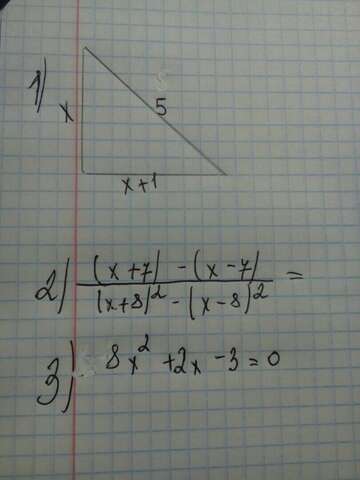 1)
x
5
x+1
2) (x+7) - (x-7) / (x+8)² - (x-8)² =
3) 8x² + 2x - 3 = 0